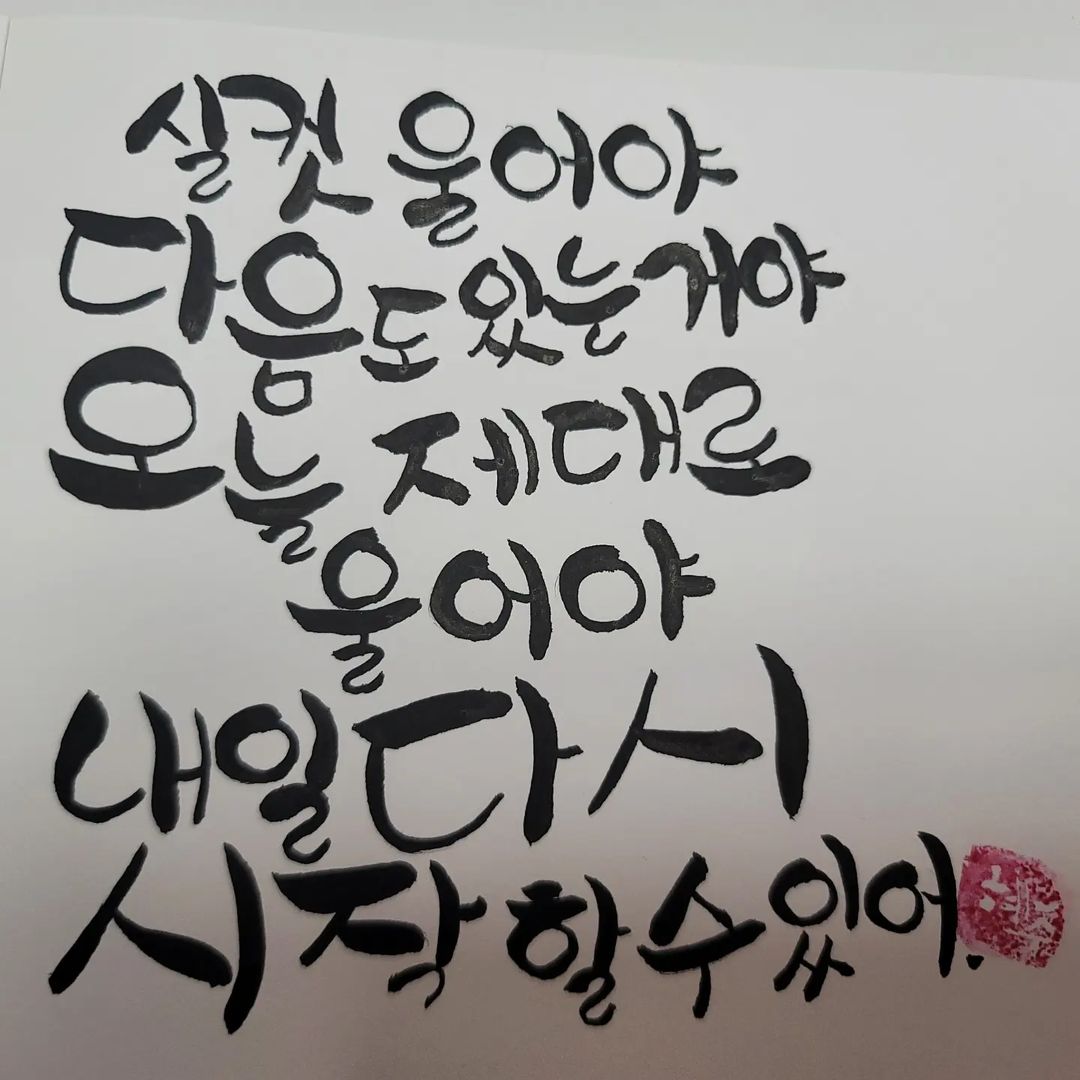 실컷 울어야
다음도 있는거야
오늘 제대로
울어야
내일 다시
시작할 수 있어.